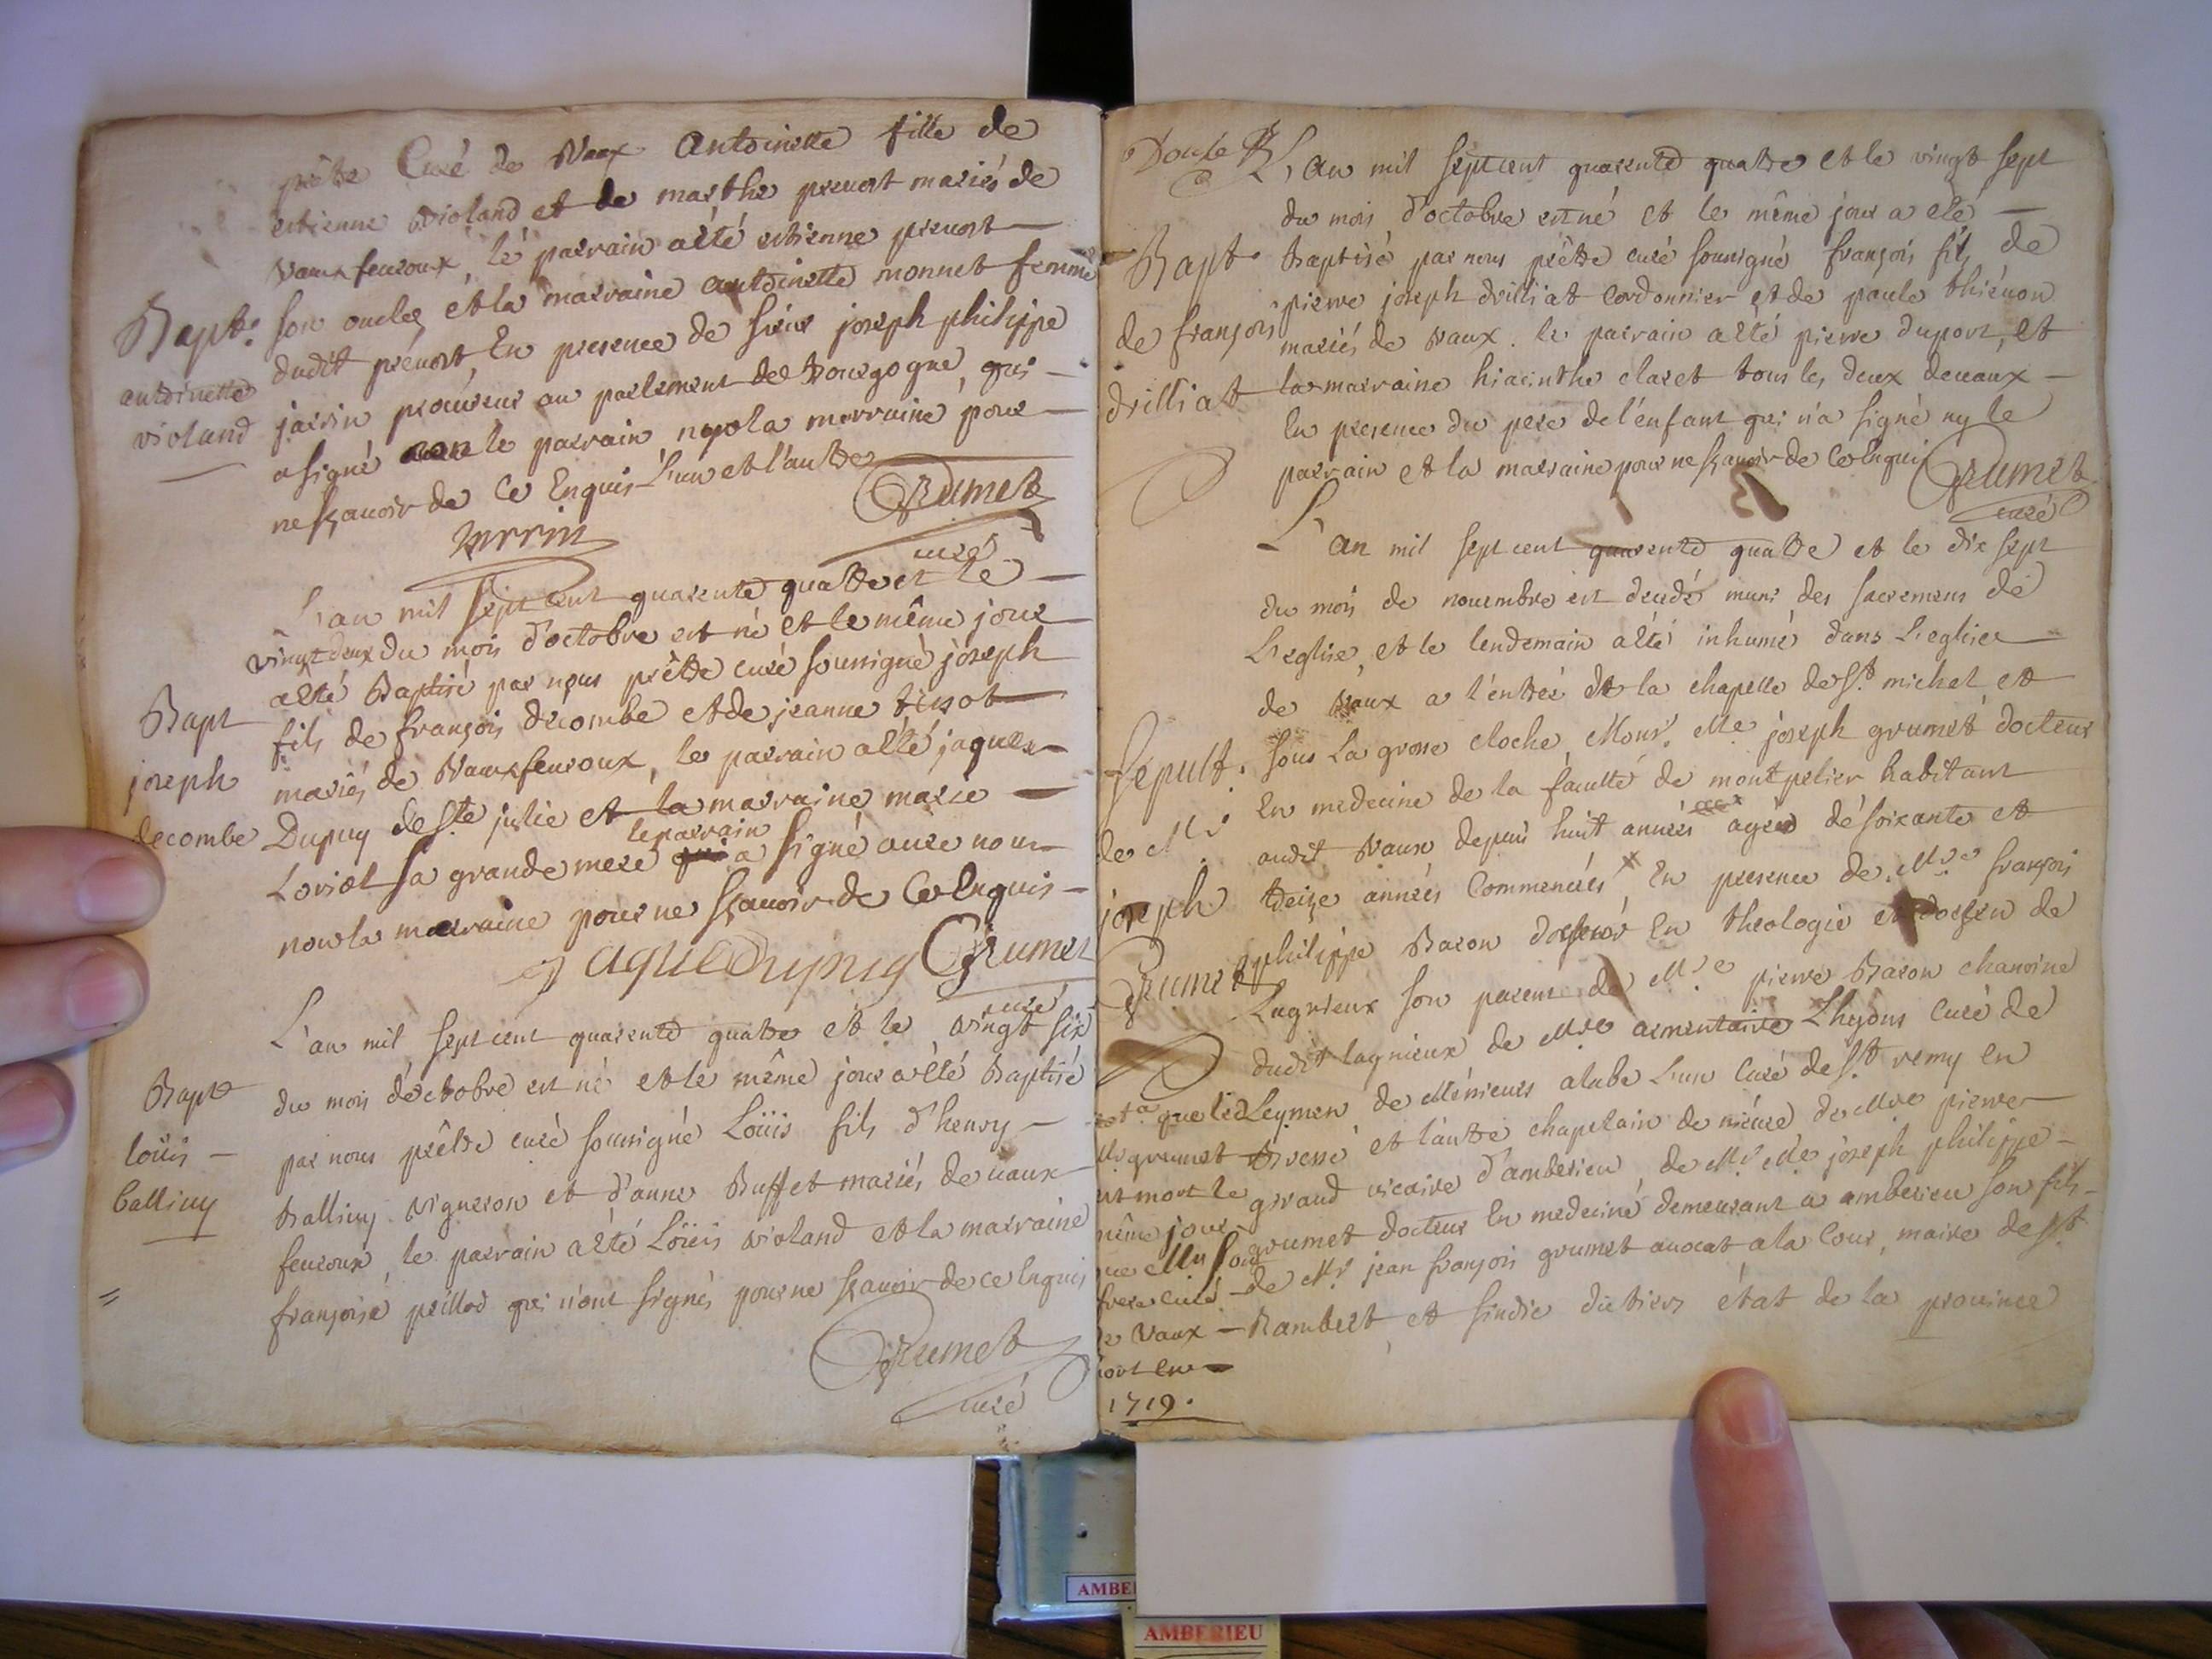 prêtre Curé de Vaux Antoinette fille de
estienne violand et de marthe preuost mariés de
Vaux feuroux, le parrain a été estienne preuost
son oncle, et la marraine antoinette monnet femme
dudit preuost, En presence de sieur joseph philippe
jarrin procureur au parlement de Bourgogne, qui
a signé non le parrain ny la marraine pour
ne sçauoir de ce Enquis L'un et l'autre
Grumet
curé
Bapt.
antoinette
violand
L'an mil sept cent quarente quatre et le
vingt deux du mois d'octobre est né et le même jour
a été Baptisé par nous prêtre curé soussigné joseph
fils de françois decombe et de jeanne tissot
mariés de Vaux feuroux, le parrain a été jaques
Dupuy de Ste julie et la marraine marie
Loriol sa grande mere le parrain a signé auec nous
non la marraine pour ne sçauoir de ce Enquis
jaque Dupuy Grumet
curé
Bapt
joseph
decombe
L'an mil sept cent quarente quatre et le vingt six
du mois d'octobre est né et le même jour a été Baptisé
par nous prêtre curé soussigné Loüis fils d'henry
Balliuy vigneron et d'anne Buffet mariés de uaux
feuroux, le parrain a été Loüis violand et la marraine
françoise prillod qui n'ont signés pour ne sçauoir de ce Enquis
Grumet
curé
Bapt
loüis
balliuy
Douse
L'an mil sept cent quarente quatre et le vingt sept
du mois d'octobre est né et le même jour a eté
baptisé par nous prêtre curé soussigné françois fils de
pierre joseph drilliat Cordonnier et de paule thieuon
mariés de vaux. le parrain a été pierre duport, et
la marraine hiacinthe claret tous les deux de uaux
En presence du pere de l'enfant qui n'a signé ny le
parrain et la marraine pour ne sçauoir de ce Enquis Grumet
curé
Bapt.
de françois
drilliat
L'an mil sept cent quarente quatre et le dix sept
du mois de nouembre est decedé muni des sacremens de
L'eglise, et le lendemain a été inhumé dans L'eglise
de vaux a l'entrée de la chapelle de St. michel et
sous La grosse cloche, Monsr. Me joseph grumet docteur
En medecine de la faculté de montpelier habitant
audit vaux depuis huit années agée de soixante et
treize années Commencées En presence de Mre françois
philippe Baron docteur En theologie et doyen de
Lagnieux son parent de Mre pierre Baron chanoine
dudit lagnieux de Mre armentaire Theyons Curé de
Leymen de Messieurs alabe L'un Curé de St. remy en
Bresse et l'autre chapelain de de Mre pierre
giraud vicaire d'amberieu, de Mr Me joseph philippe
grumet docteur En medecine demeurant a amberieu son fils
de Mr. jean françois grumet auocat a la Cour, maire de St
Rambert, et sindic du tiers état de la prouince
Sepult.
de Mr
joseph
Grumet
nota que led
Mr grumet
est mort le
même jour
que Mr son
frere curé
de Vaux
mort En
1719.